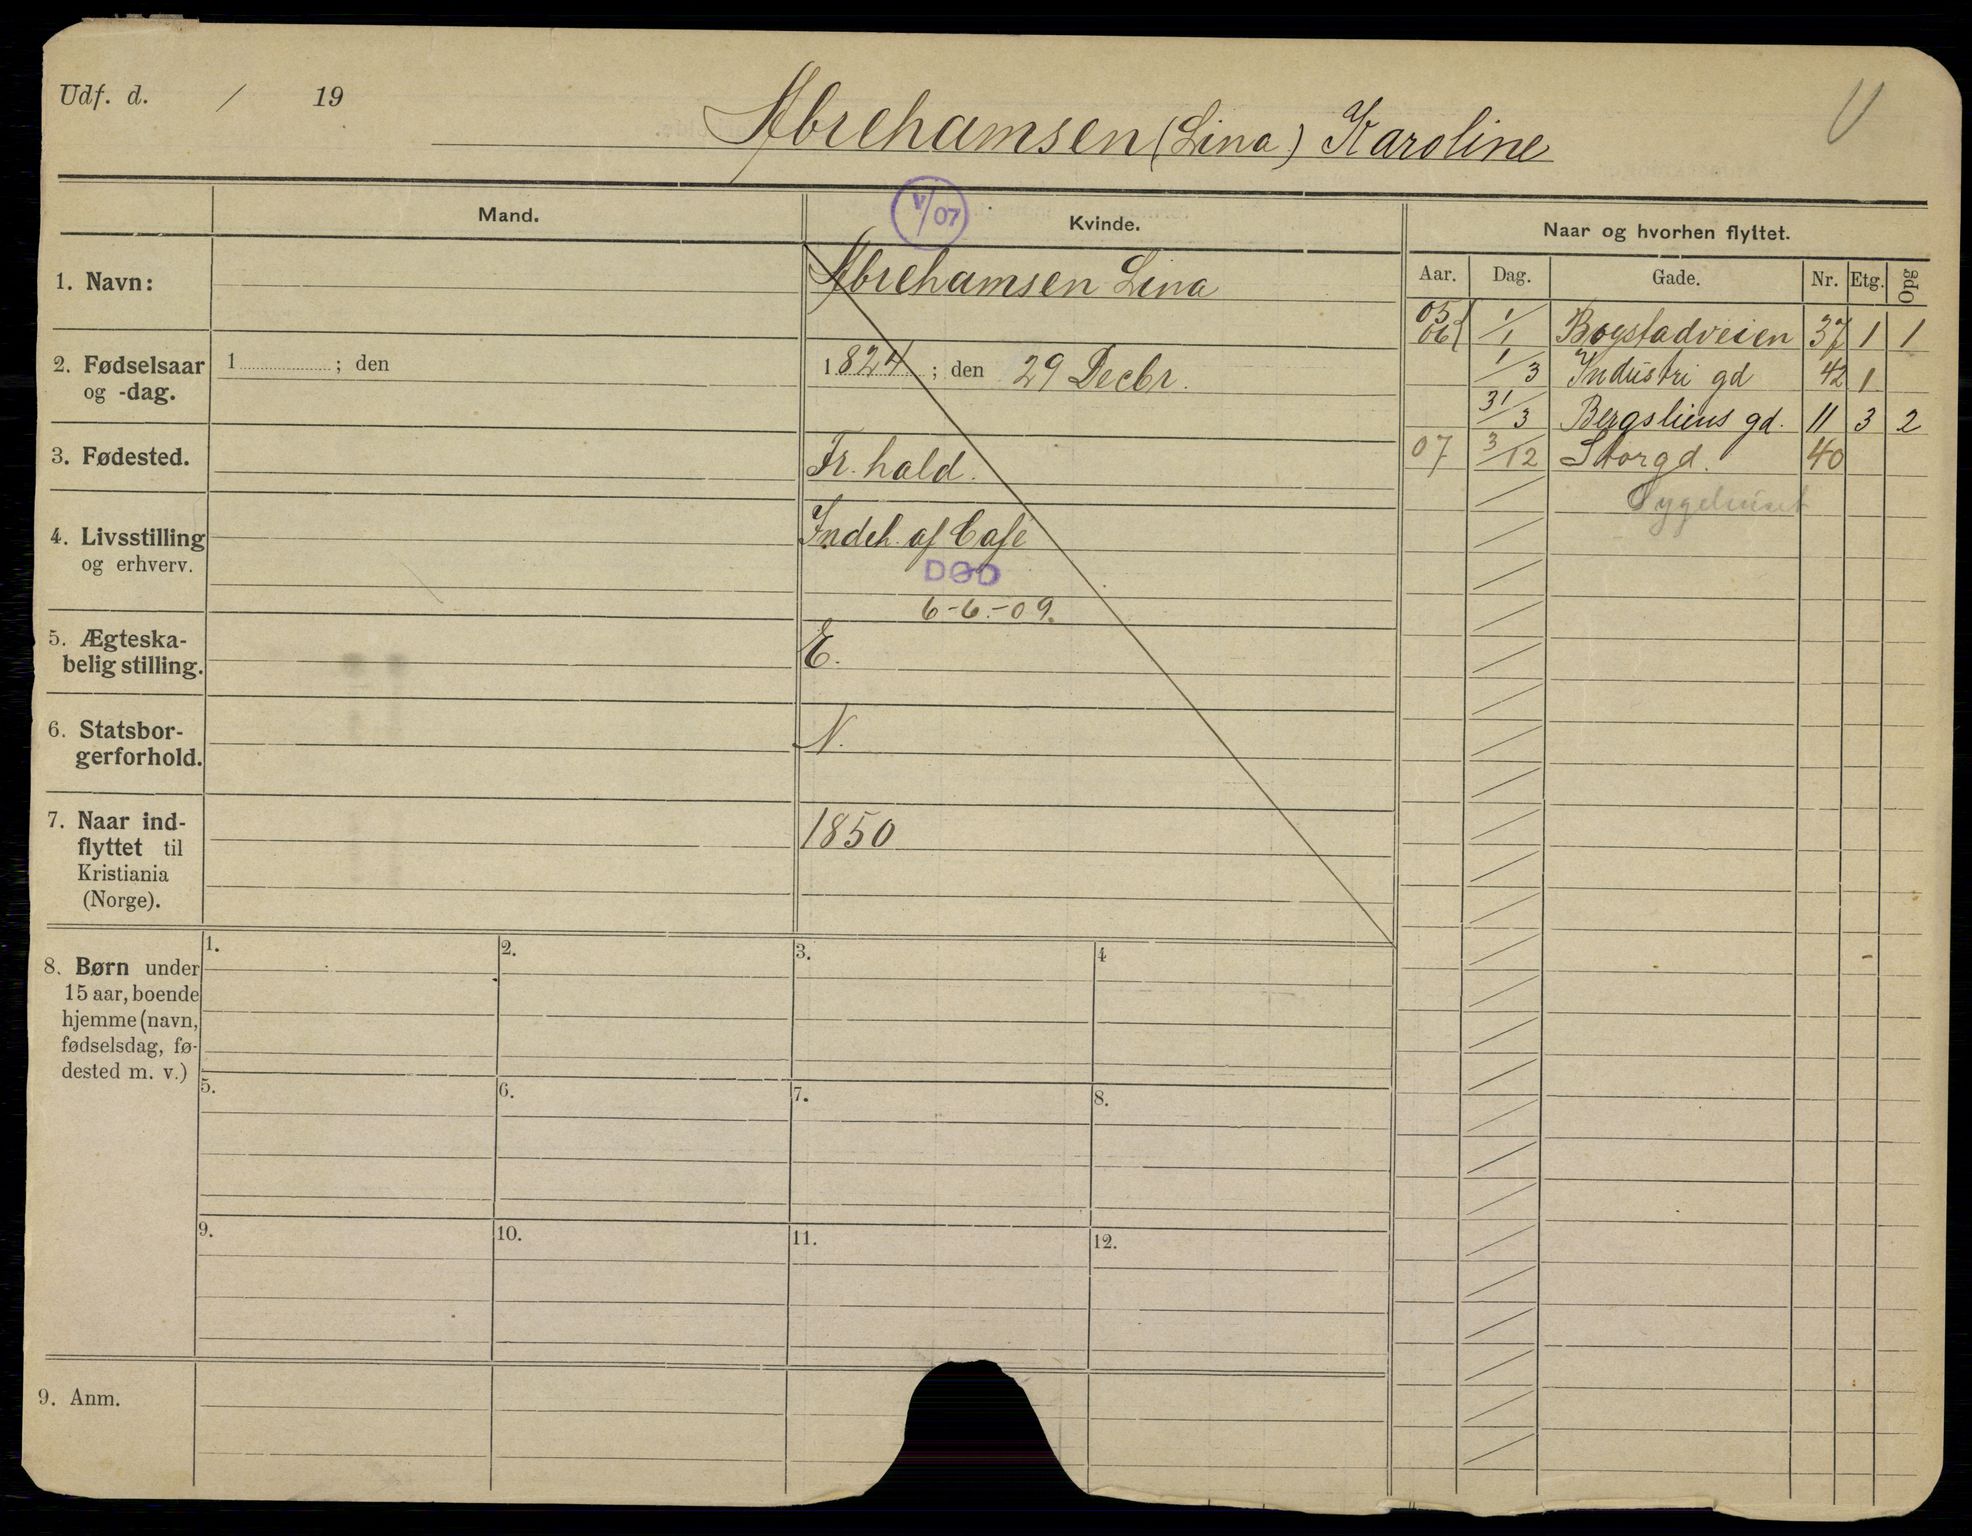 Udf. d. / 19
Abrehamsen (Lina) Karoline
V/07
Mand.
Kvinde.
Naar og hvorhen flyttet.
Aar. Dag. Gade. Nr. Etg. Opg
1. Navn:
Abrehamsen Lina
05
06 1/1 Bogstadveien 37 1 1
1/3 Industri gd 42 1
31/3 Bergsliens gd. 11 3 2
07 3/12 Storgd. 40
Sygehuset
2. Fødselsaar
og -dag.
1 ; den
1824 ; den 29 Decbr.
3. Fødested.
Fr. hald.
4. Livsstilling
og erhverv.
Indeh. af Café
DØD
6-6.-09.
5. Ægteska-
belig stilling.
E.
6. Statsbor-
gerforhold.
N.
7. Naar ind-
flyttet til
Kristiania
(Norge).
1850
8. Børn under
15 aar, boende
hjemme (navn,
fødselsdag, fø-
dested m. v.)
1. 2. 3. 4
5. 6. 7. 8.
9. 10. 11. 12.
9. Anm.